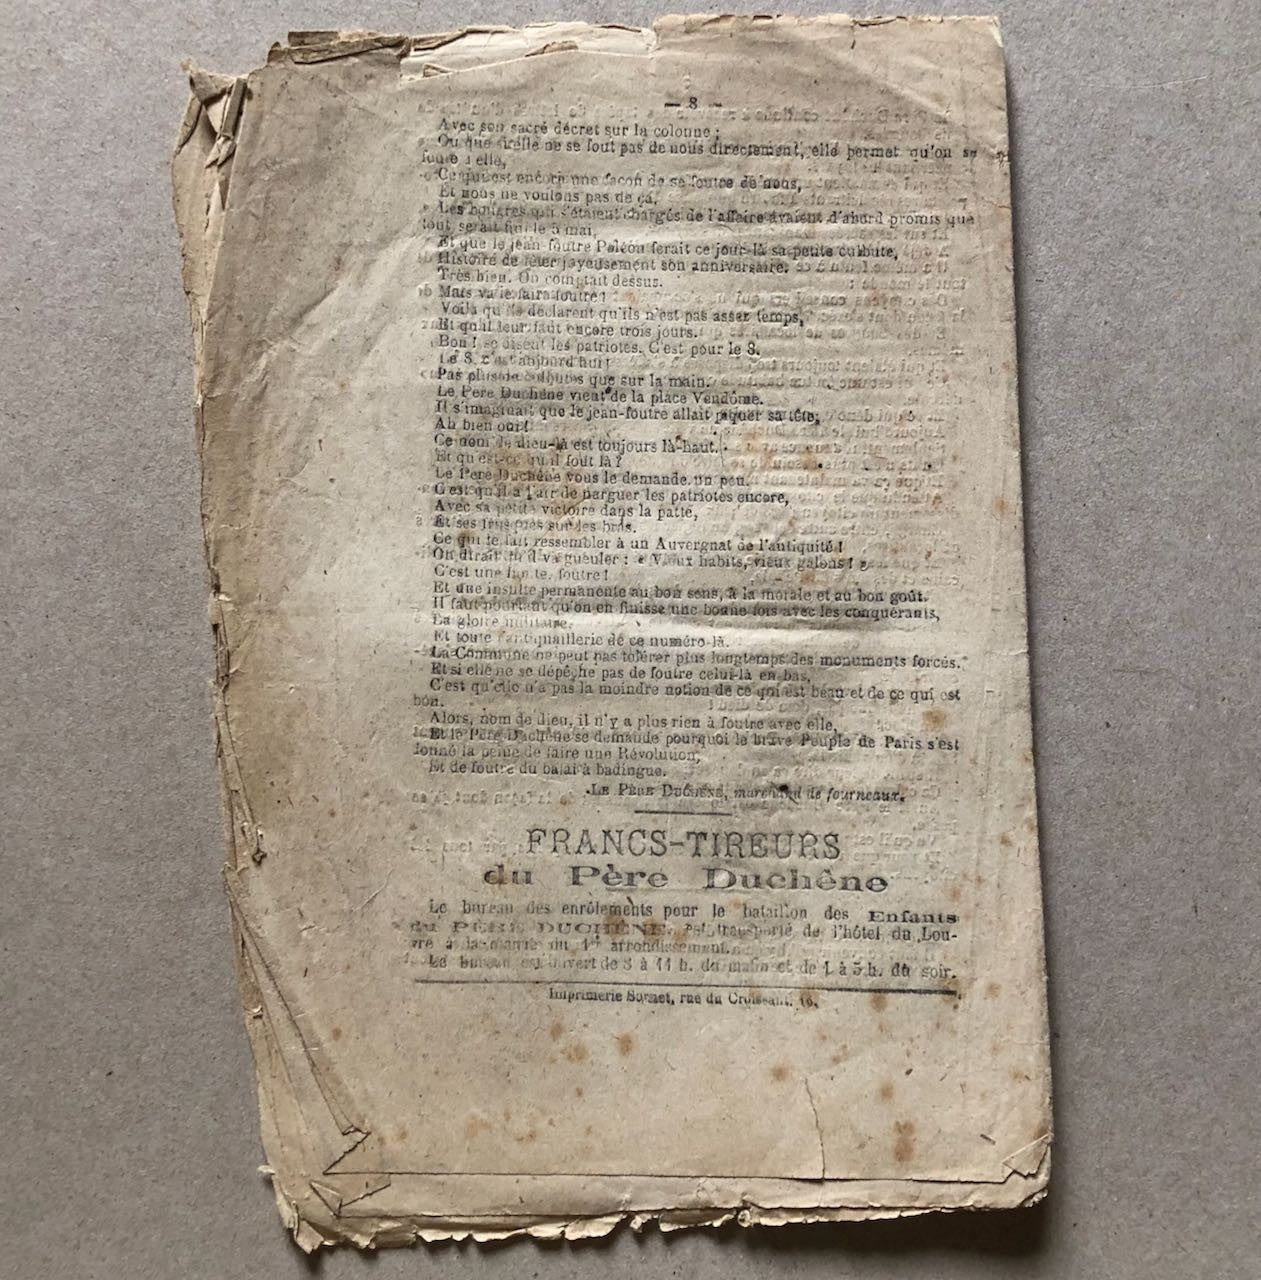 — 8 —
Avec son sacré décret sur la colonne ;
Ou que si elle ne se fout pas de nous directement, elle permet qu'on se
foute d'elle,
Ce qui est encore une façon de se foutre de nous,
Et nous ne voulons pas de ça.
Les bougres qui s'étaient chargés de l'affaire avaient d'abord promis que
tout serait fini le 5 mai,
Et que le jean-foutre Poléon ferait ce jour-là sa petite culbute,
Histoire de fêter joyeusement son anniversaire.
Très bien. On comptait dessus.
Mais va te faire foutre !
Voilà qu'ils déclarent qu'ils n'est pas assez temps,
Et qu'il leur faut encore trois jours.
Bon ! se disent les patriotes. C'est pour le 8.
Le 8, c'est aujourd'hui !
Pas plus de culbutes que sur la main.
Le Père Duchêne vient de la place Vendôme.
Il s'imaginait que le jean-foutre allait piquer sa tête;
Ah bien oui !
Ce nom de dieu-là est toujours là-haut.
Et qu'est-ce qu'il fout là ?
Le Père Duchêne vous le demande un peu.
C'est qu'il a l'air de narguer les patriotes encore,
Avec sa petite victoire dans la patte,
Et ses
Ce qui le fait ressembler à un Auvergnat de l'antiquité !
On dirait qu'il va gueuler : « Vieux habits, vieux galons ! »
C'est une honte, foutre !
Et une insulte permanente au bon sens, à la morale et au bon goût.
Il faut pourtant qu'on en finisse une bonne fois avec les conquérants,
La gloire militaire,
Et toute l'antiquaillerie de ce numéro-là.
La Commune ne peut pas tolérer plus longtemps des monuments forcés.
Et si elle ne se dépêche pas de foutre celui-là en bas,
C'est qu'elle n'a pas la moindre notion de ce qui est beau et de ce qui est
bon.
Alors, nom de dieu, il n'y a plus rien à foutre avec elle,
Et le Père Duchêne se demande pourquoi le brave Peuple de Paris s'est
donné la peine de faire une Révolution,
Et de foutre du balai à badingue.
LE PÈRE DUCHÊNE, marchand de fourneaux.
FRANCS-TIREURS
du Père Duchêne
Le bureau des enrôlements pour le bataillon des Enfants
du PÈRE DUCHÊNE, est transporté de l'hôtel du Lou-
vre à la mairie du 1er arrondissement.
Le bureau est ouvert de 8 à 11 h. du matin et de 1 à 5 h. du soir.
Imprimerie Sornet, rue du Croissant, 16.